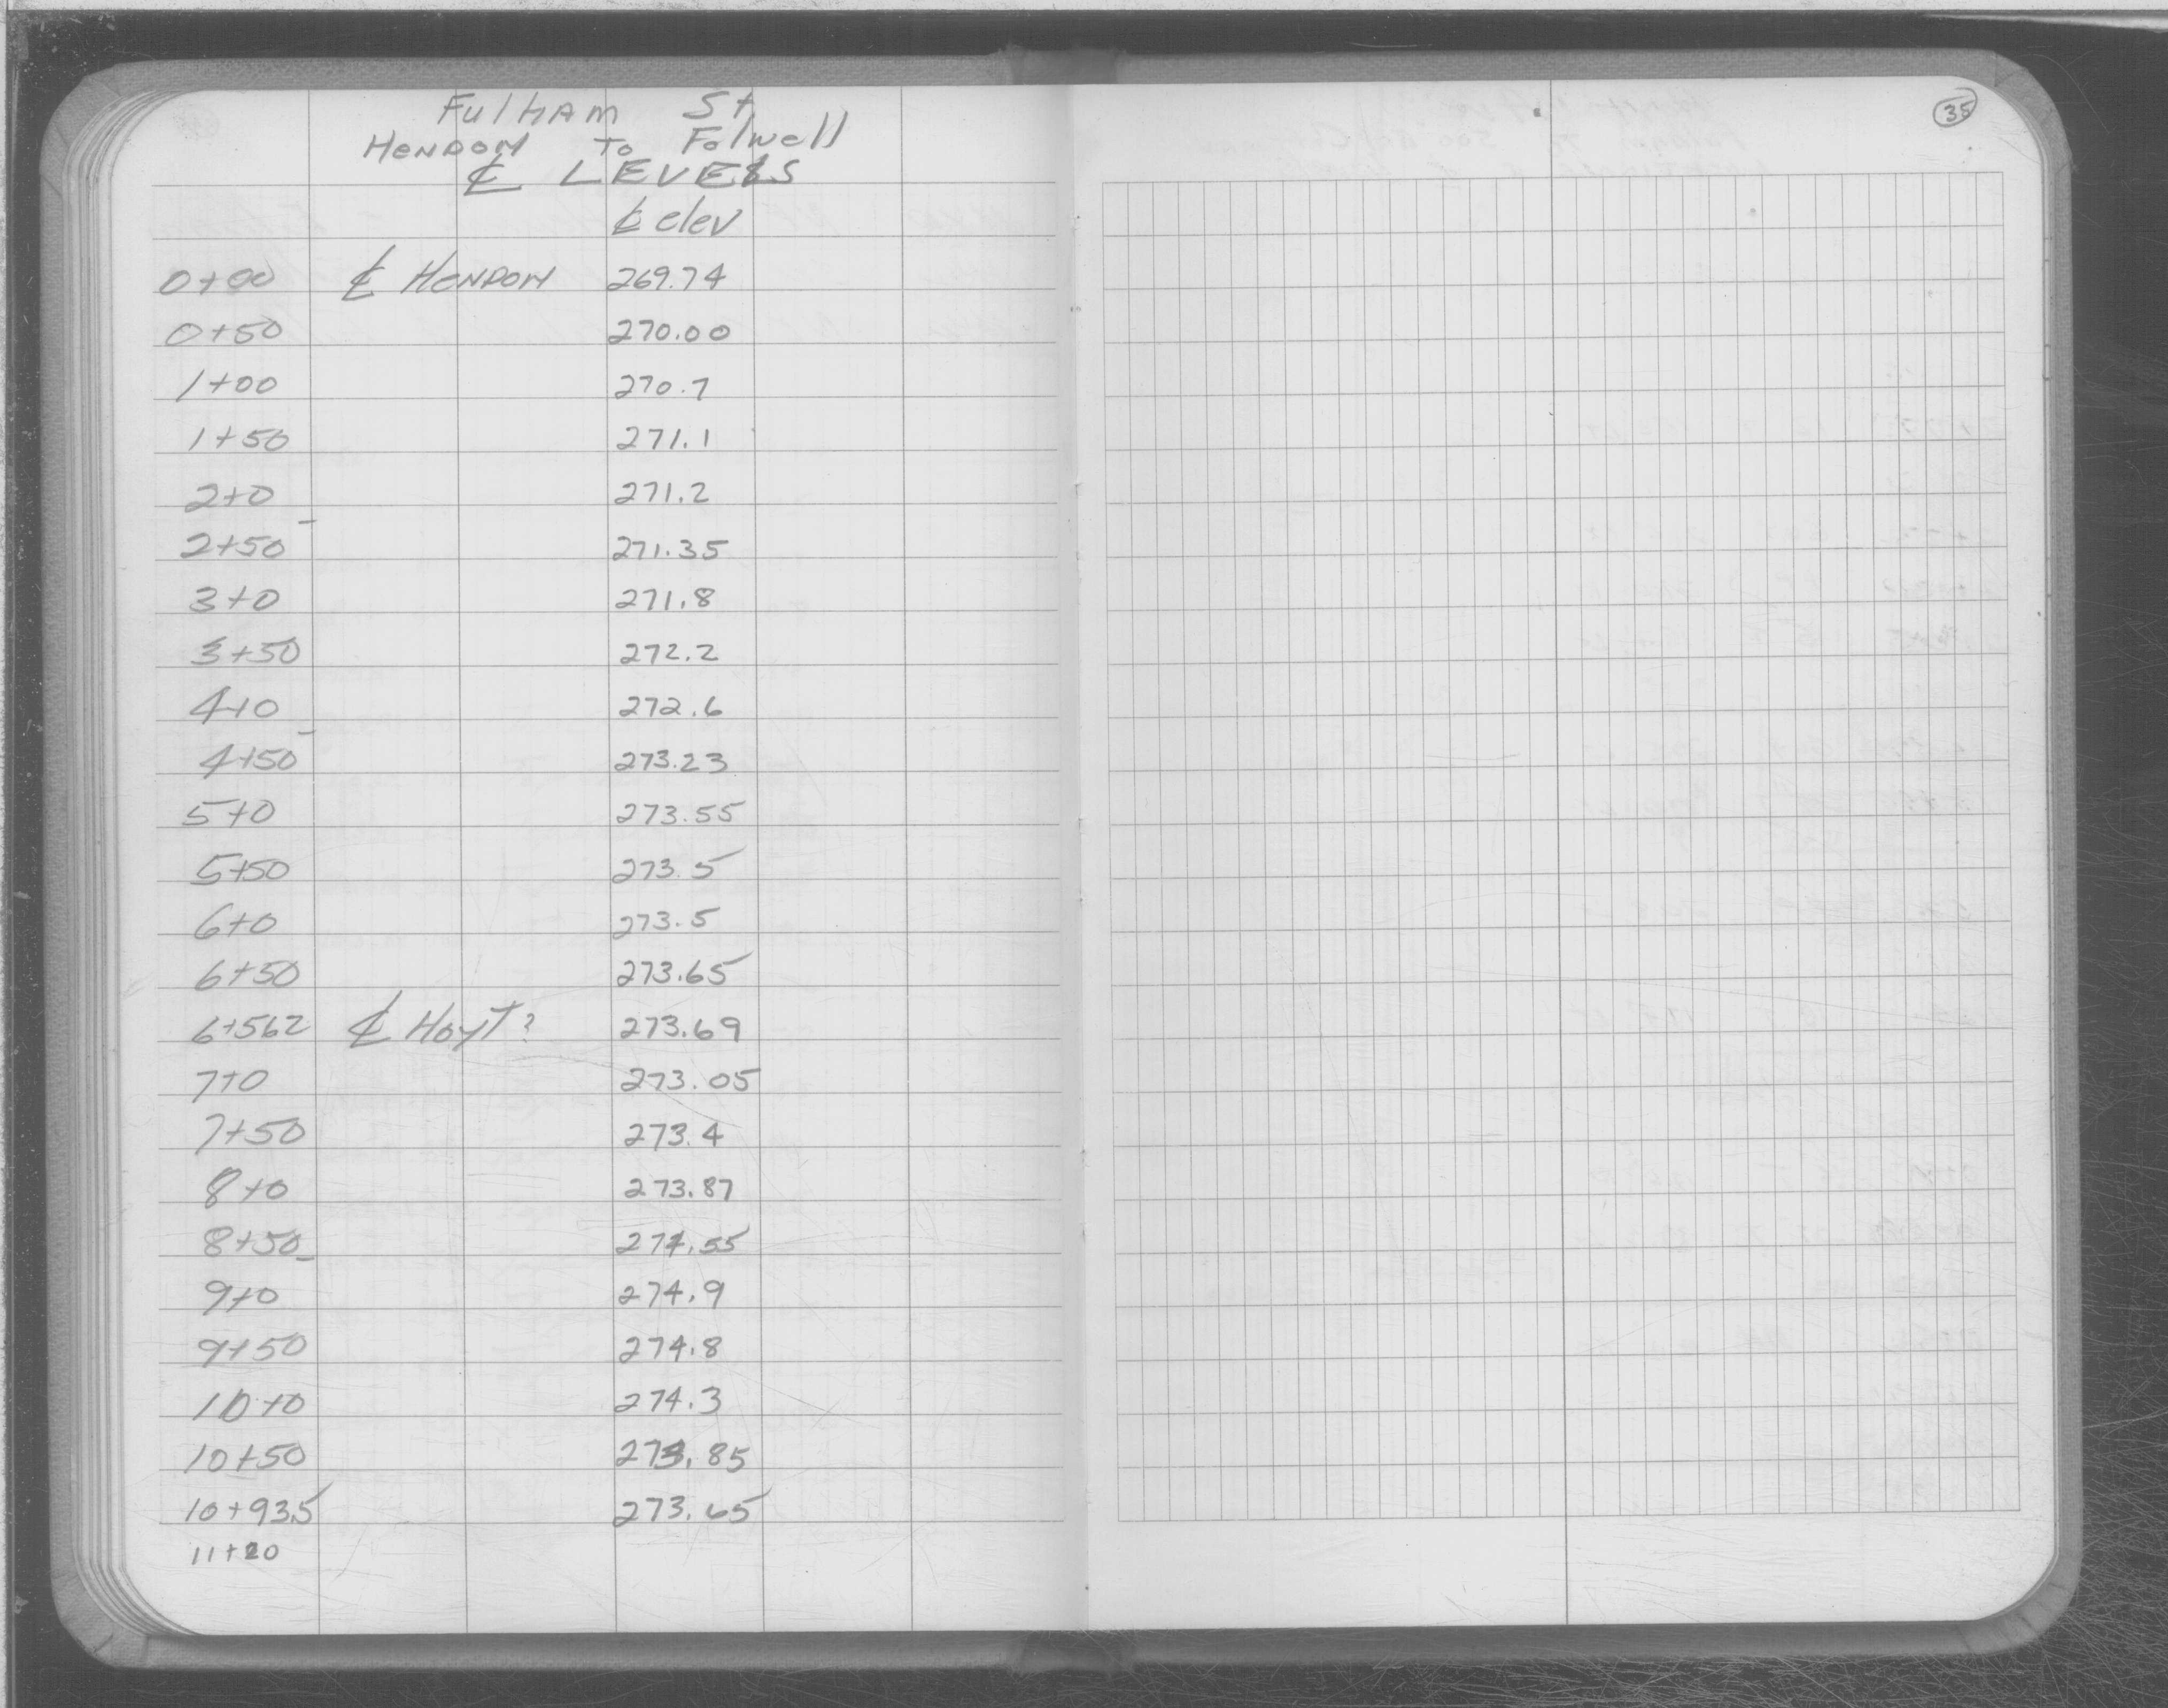 35
Fulham St
Hendon To Folwell
℄ LEVELS
℄ elev
0+00 ℄ Hendon 269.74
0+50 270.00
1+00 270.7
1+50 271.1
2+0 271.2
2+50 271.35
3+0 271.8
3+50 272.2
4+0 272.6
4+50 273.23
5+0 273.55
5+50 273.5
6+0 273.5
6+50 273.65
6+562 ℄ Hoyt? 273.69
7+0 273.05
7+50 273.4
8+0 273.87
8+50 274.55
9+0 274.9
9+50 274.8
10+0 274.3
10+50 273.85
10+93.5 273.65
11+20